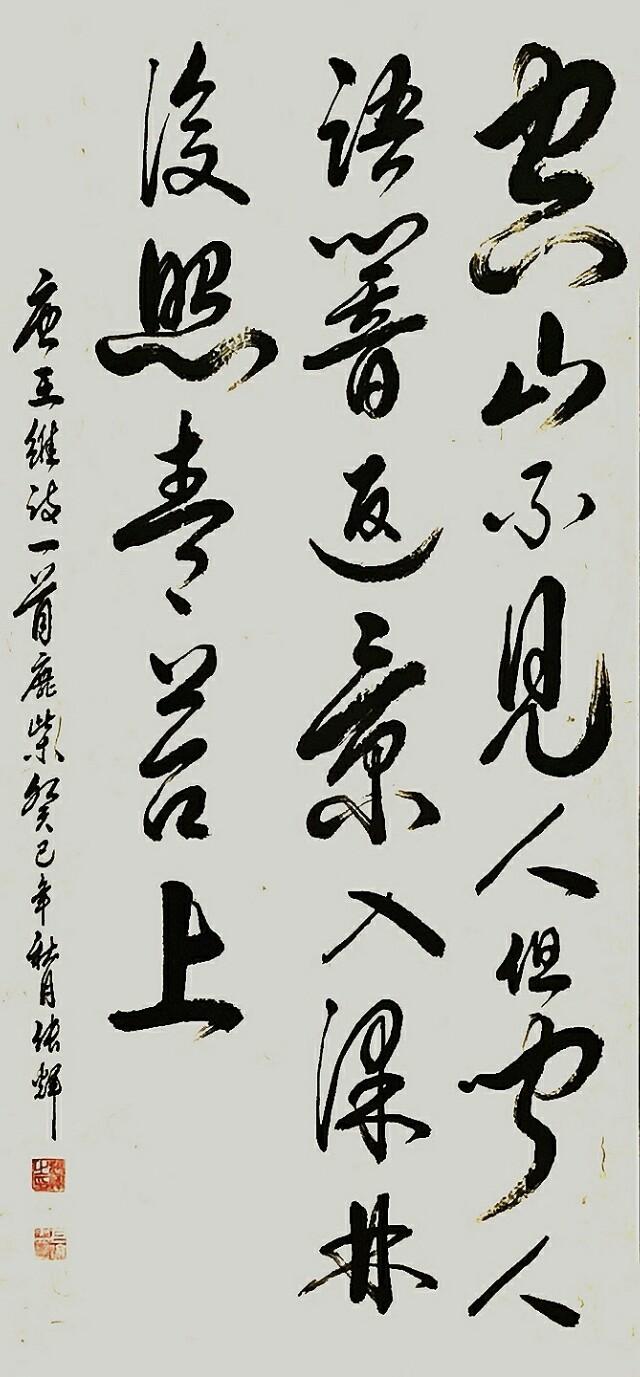 空山不見人但聞人
語響返景入深林
復照青苔上
唐王維詩一首鹿柴癸巳年秋月張輝